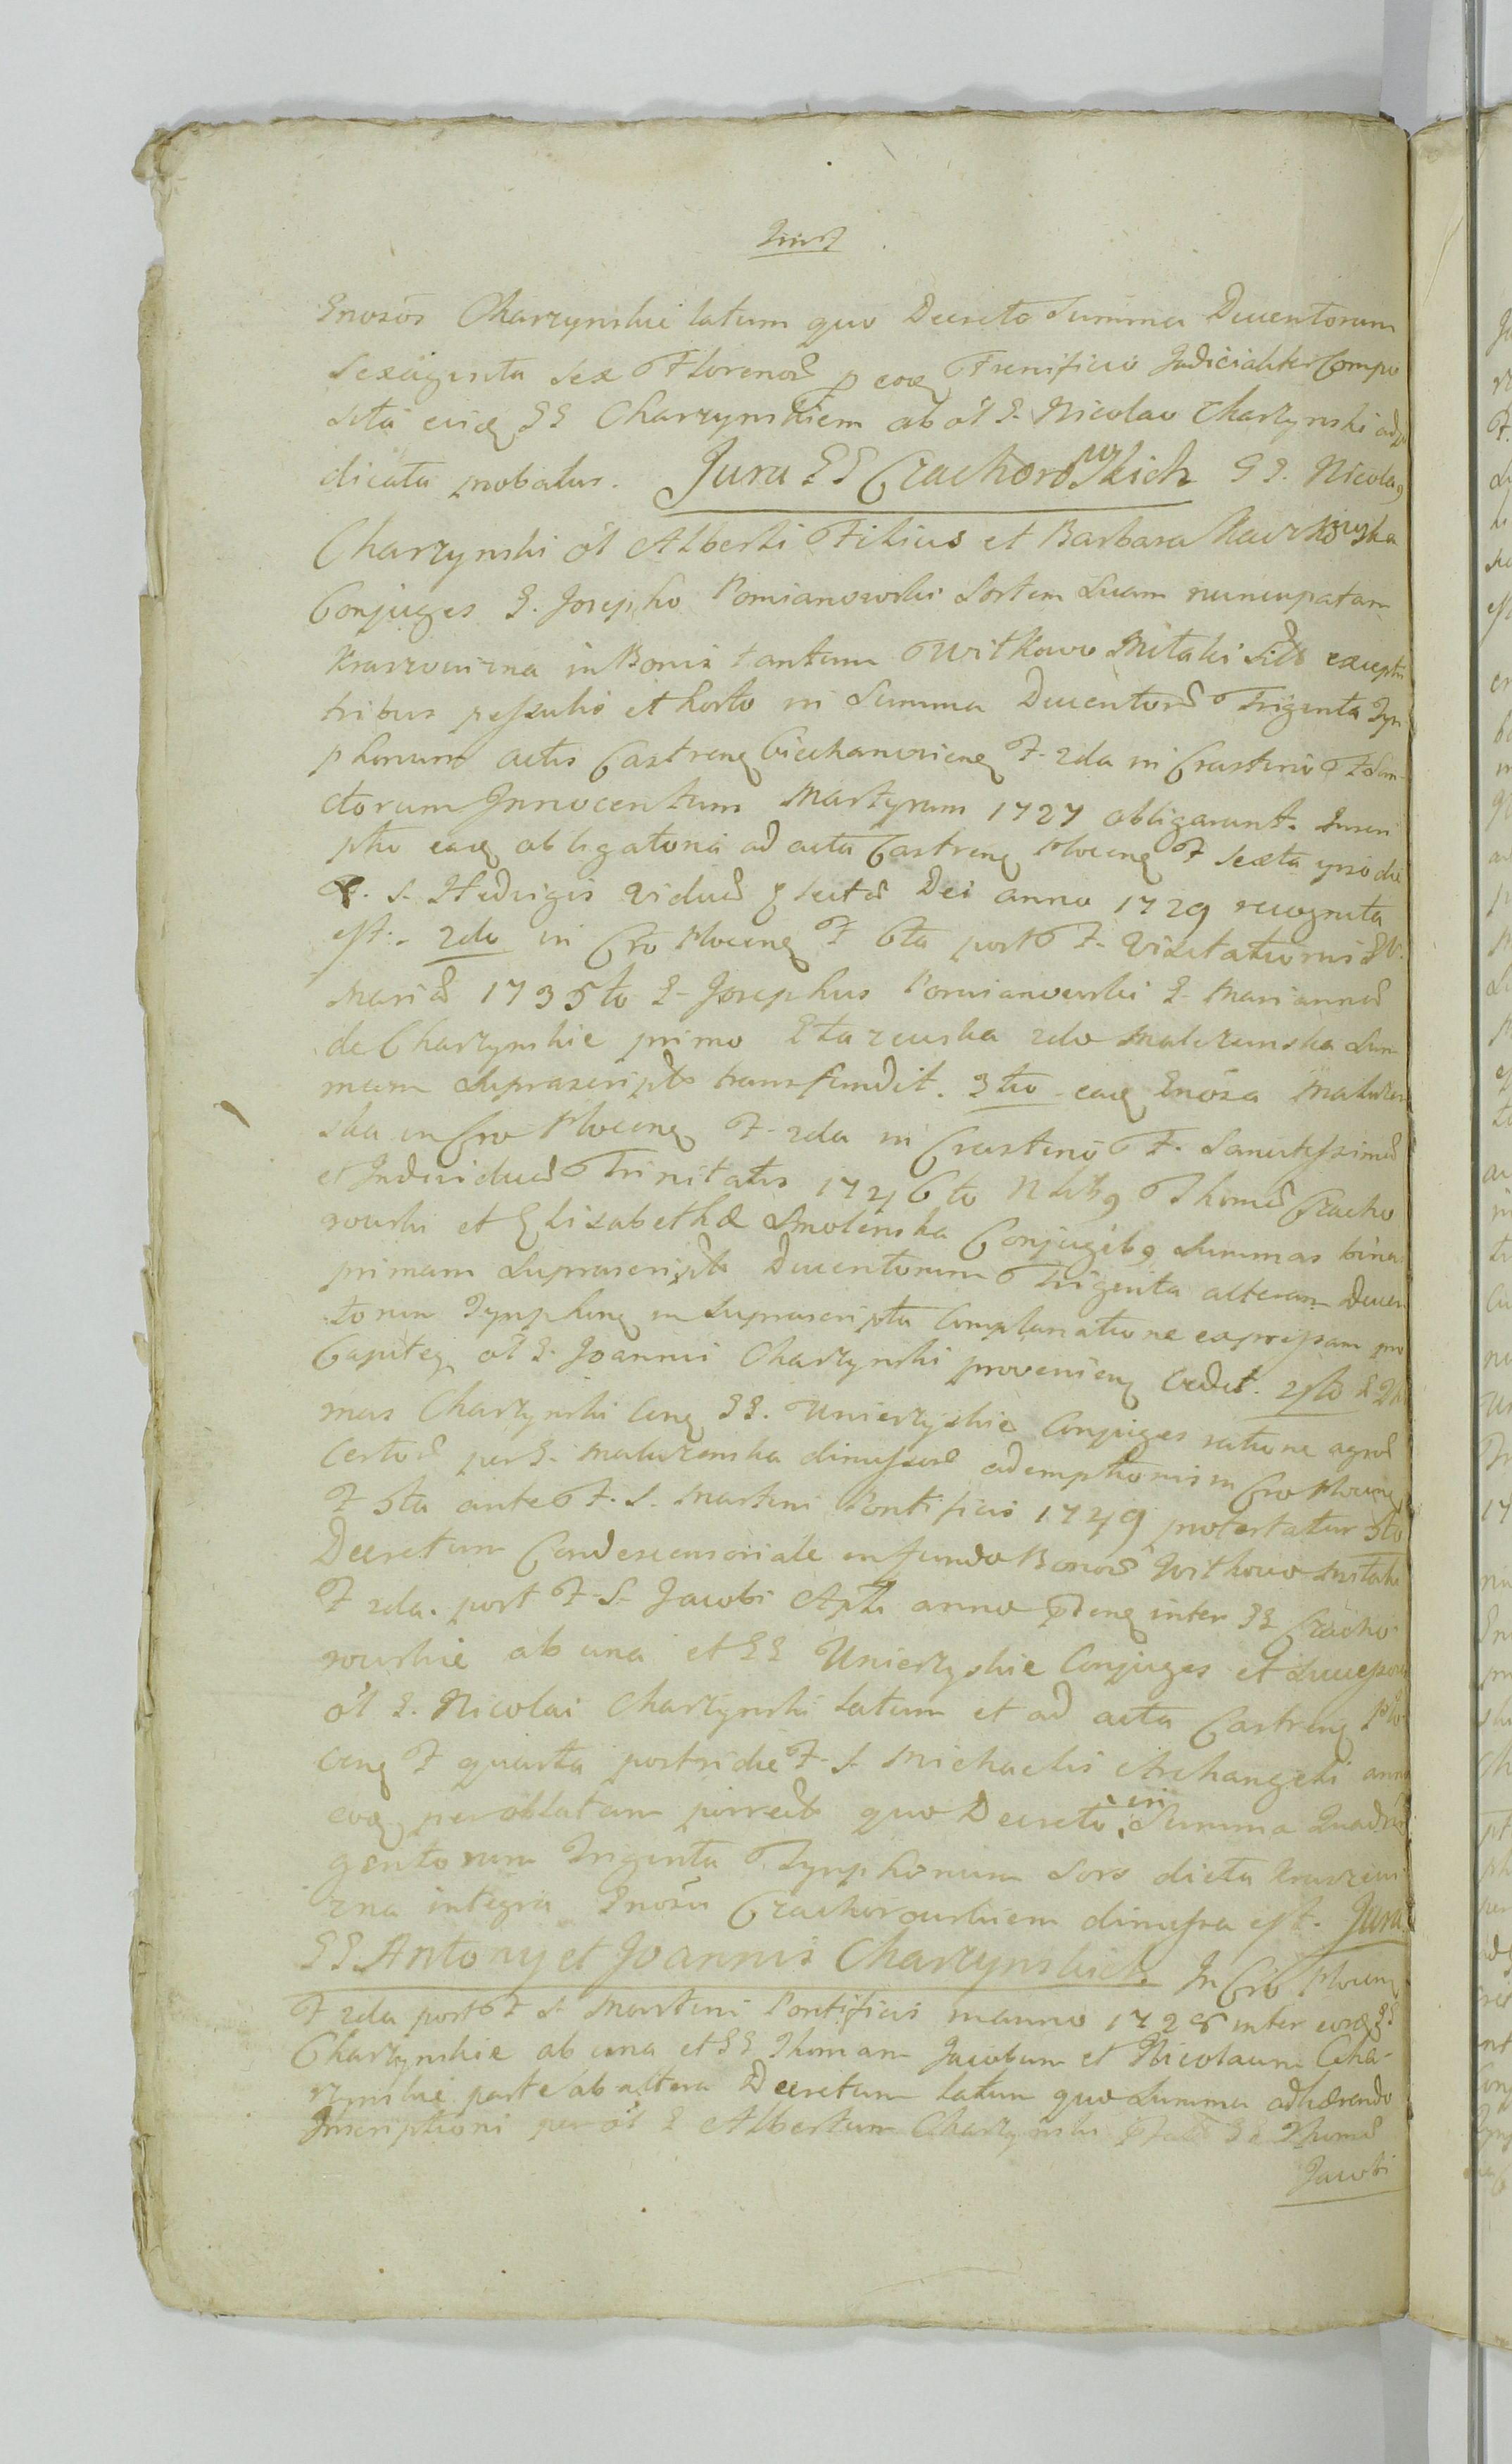 Gnosos Charzynskie latum quo Decreto Summa Ducentorum
Sexaginta Sex Florenor p eosq Frenificio Judicialiter Compo
sita eisq GG Charzynskiem ab ol G. Nicolao Charzynski adju
dicata probatur. Jura GG Czachorowskich GG. Nicolaq
Charzynski ol Alberti Filius et Barbara
Conjuges G. Josepho Pomianowski Sortem Suam nuncupatam
Kraszewizna in Bonis tantum Witkowo sitis exceptis
tribus pessulis et horto in Summa Ducentor Triginta Tyn
phonum actis Castrenq Ciechanovienq F. 2da in Crastino F. San
ctorum Innocentum Martyrum 1727 obligarunt. Inscri
ptio eaq obligatoria ad acta Castrenq Plocenq F sexta ipso die
F. S. Hedvigis Vidua Electa Dei anno 1729 recognita
est. 2do in Cro Plocenq F 6ta post F. Visitationis BV.
Maria 1735to G. Josephus Pomianowski G. Marianna
de Charzynskie primo 2do Maluzenska Sum
mam Suprascripta transfundit. 3tio eaq Gnosa Maluzen
ska in Cro Plocenq F. 2da in Crastino F. Sanctissima
et Individua Trinitatis 1746to Nbilibq Thoma Czacho
rowski et Elisabetha Smolenska Conjugibq Summas binas
primam Suprascripta Ducentorum Triginta alteram Ducen
torum Tynphonq in Suprascripta Complanatione expressam pro
Capiteq ol G. Joannis Charzynski provenienq cedit. 4to G Tho
mas Charzynski conq GG. Unierzyskie Conjuges ratione agror
certor per G. Maluzenska dimissor ademptionis in Cro Plocenq
F 5ta ante F. S. Martini Pontificis 1749 protestatur 5to
Decretum Condescensoriale in fundo Bonor Witkowo
F 2da. post F. S. Jacobi Apli anno inter GG Czacho
rowskie ab una et GG Unierzyskie Conjuges et Successores
ol G. Nicolai Charzynski latum et ad acta Castrenq Plo
cenq F quarta postridie F. S. Michaelis Archangeli anno
eoq per oblatam porrect quo Decreto in Summa Quadrin
gentorum Triginta Tynphonum Sors dicta Kraszewi
zna integra Gnosis Czachorowskiem dimissa est. Jura
GG Antonij et Joannis Charzynskich In Cro Plocenq
F 2da post F S. Martini Pontificis in anno 1728 inter eosq GG
Charzynskie ab una et GG Thomam Jacobum et Nicolaum Cha
rzynskie parte ab altera Decretum latum quo Summa adhærendo
Inscriptioni per ol G Albertum Charzynski GG Thoma
Jacobi